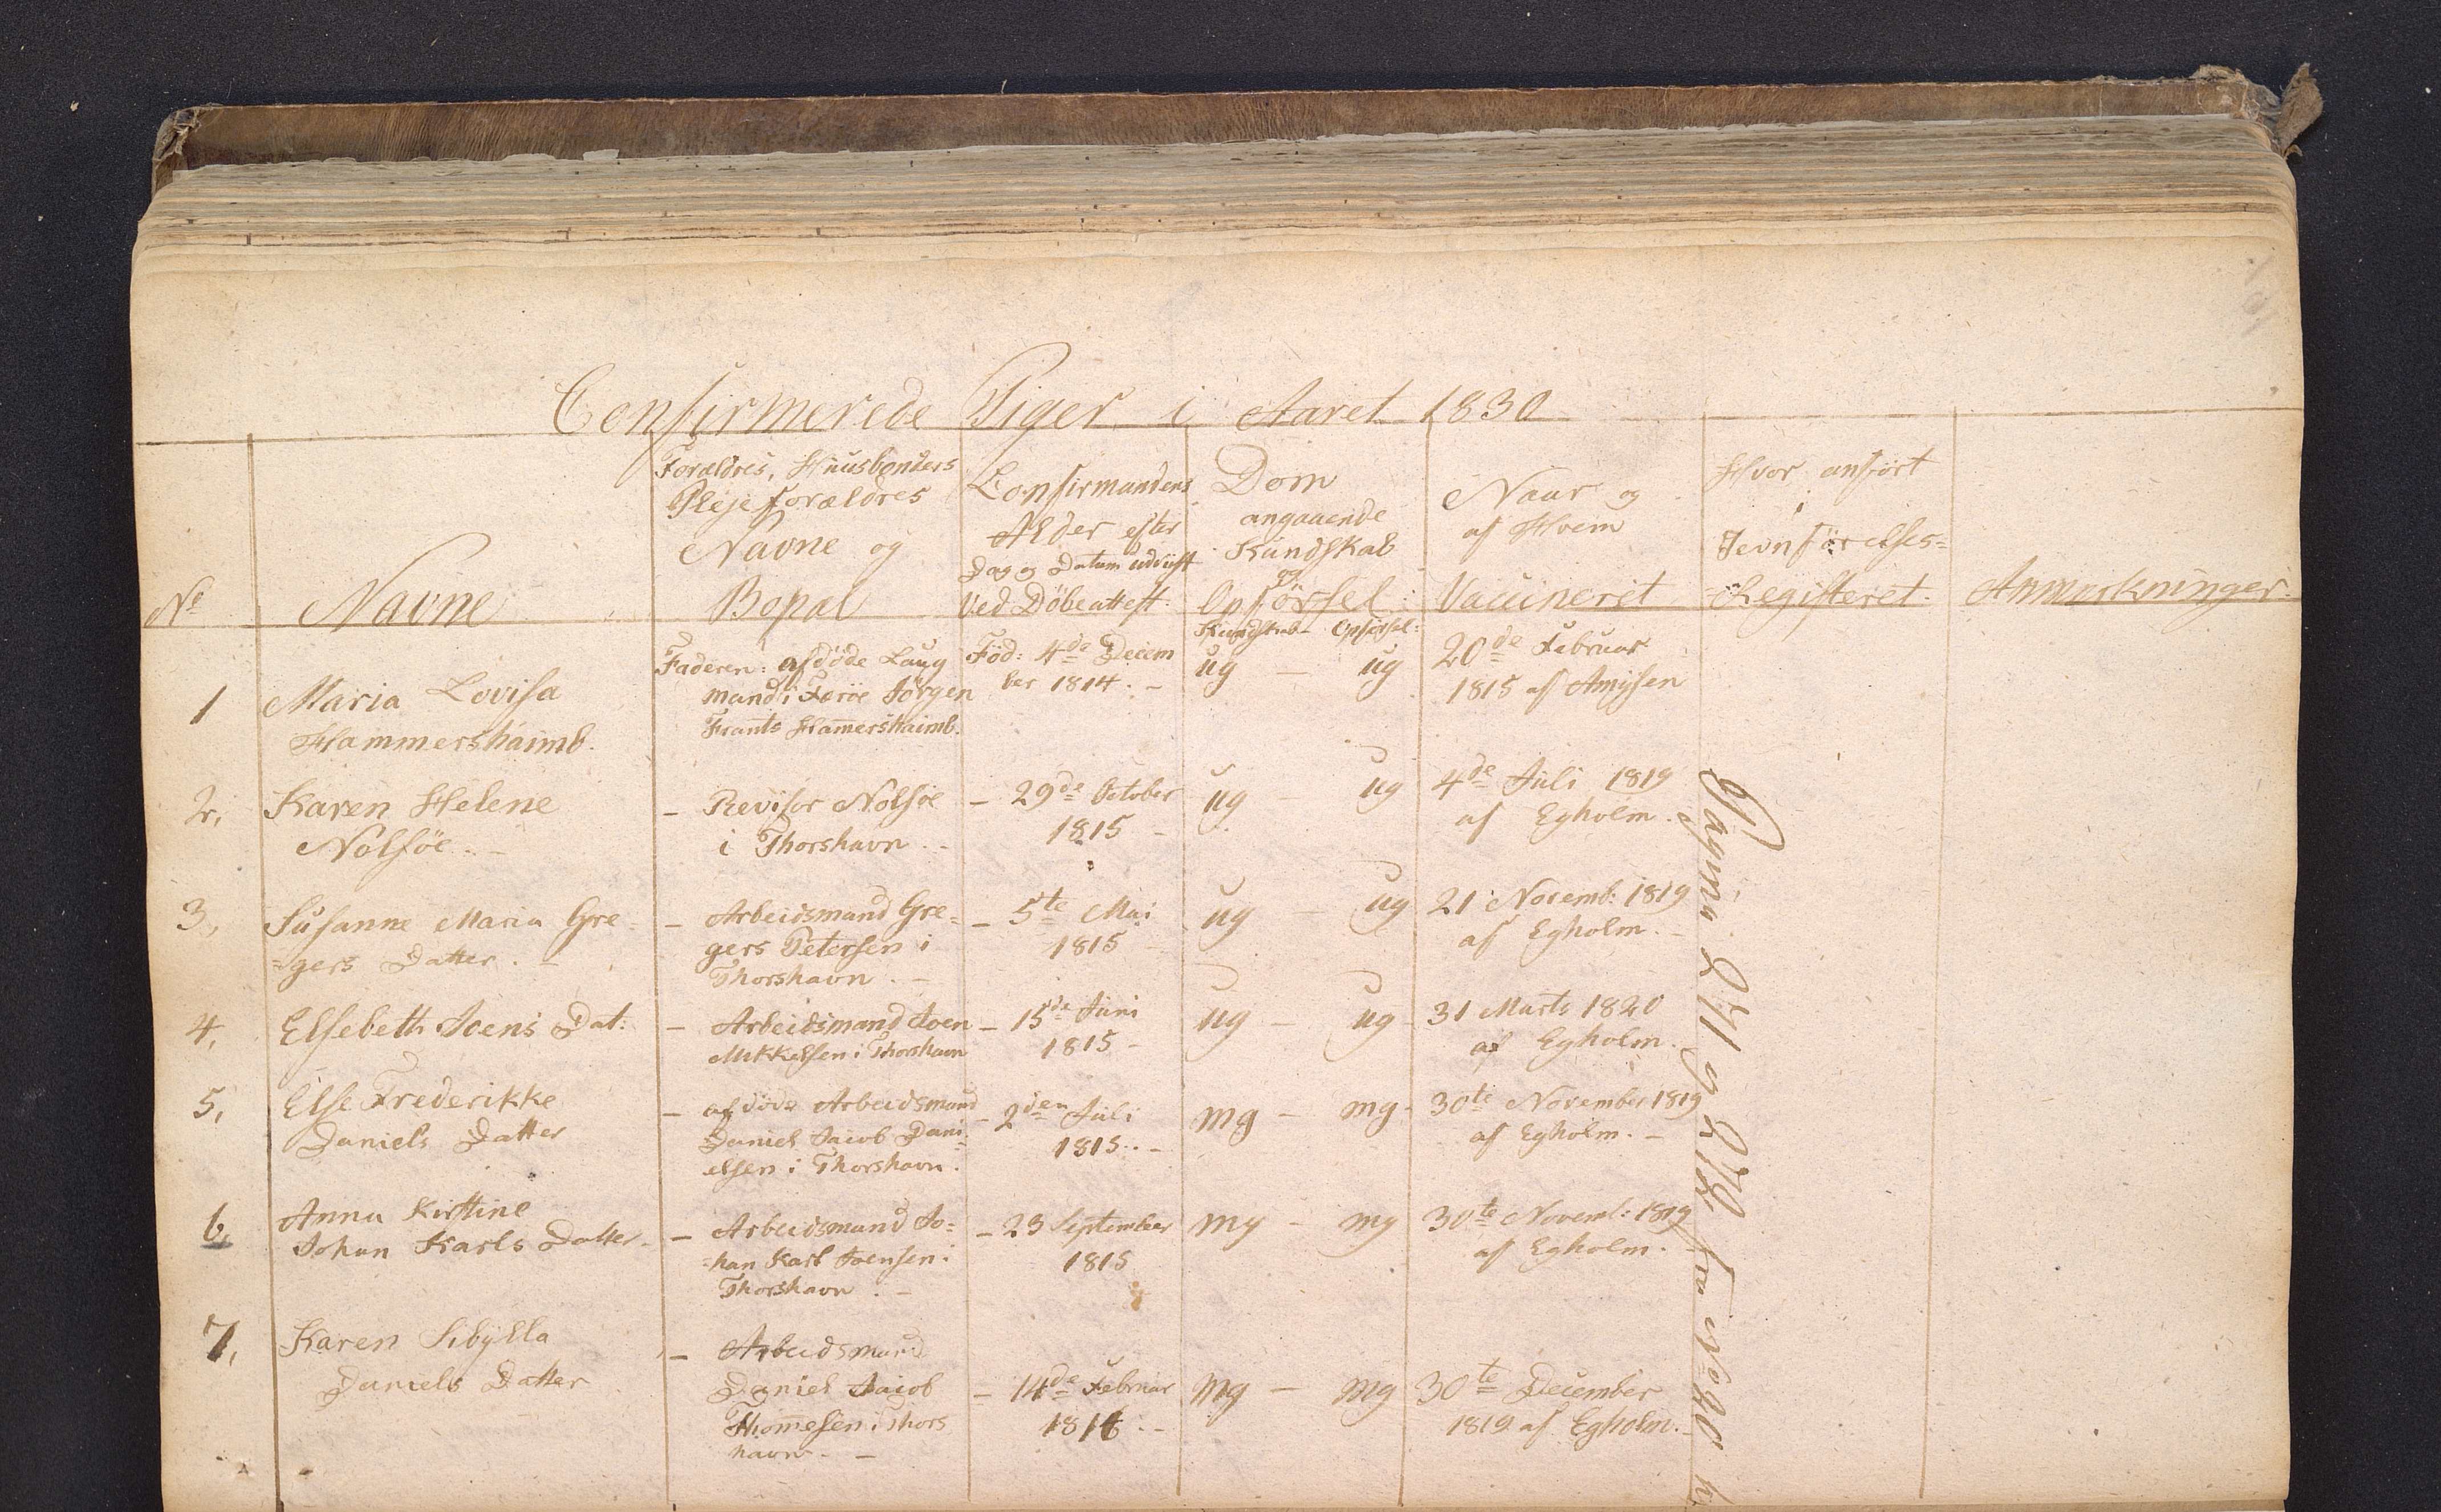 Confirmerede Piger i Aaret 1830
No
Navne
Forældres, Huusbonders
Pleje forældres
Navne og
Bopæl
Confirmandens
Alder efter
Dag og Datum udviist
ved Döbeattest.
Dom
angaaende
Kundskab
og
Opförsel:
Naar og
af Hvem
Vaccineret
Hvor anfört
i
Jevnförelses-
Registeret.
Anmærkninger.
Kundskab - Opförsel:
1
Maria Lovisa
Hammershaimb.
Faderen: afdöde Laug
mand i Færöe Jörgen
Frants Hamershaimb.
Föd: 4de Decem
ber 1814. -
ug - ug
20de Februar
1815 af
2,
Karen Helene
Nolsöe. -
- Revisor Nolsöe
i Thorshavn. -
- 29de October
1815 -
ug - ug
4de Juli 1819
af Egholm.
3,
Susanne Maria Gre
=gers Datter. -
- Arbeidsmand Gre=
gers Petersen i
Thorshavn. -
- 5te Mai
1815 -
ug - ug
21 Novemb: 1819
af Egholm. -
4,
Elsebeth Joens Dat:
- Arbeidsmand Joen
Mikkelsen i Thorshavn
- 15de Juni
1815 -
ug - ug
31 Marts 1820
af Egholm.
5,
Else Frederikke
Daniels Datter
- afdöde Arbeidsmand
Daniel Jacob Dani=
elsen i Thorshavn.
- 2den Juli
1815. -
mg - mg
30te November 1819
af Egholm. -
6,
Anna Kirstine
Johan Karls Datter -
- Arbeidsmand Jo=
=han Karl Joensen i
Thorshavn. -
- 23 September
1815
mg - mg
30te Novemb: 1819
af Egholm.
7,
Karen Sibylla
Daniels Datter
- Arbeidsmand
Daniel Jacob
Thomesen i Thors
havn. -
- 14de Februar
1816. -
mg - mg
30te December
1819 af Egholm. -
Pagina 271 og 272 fra No 90